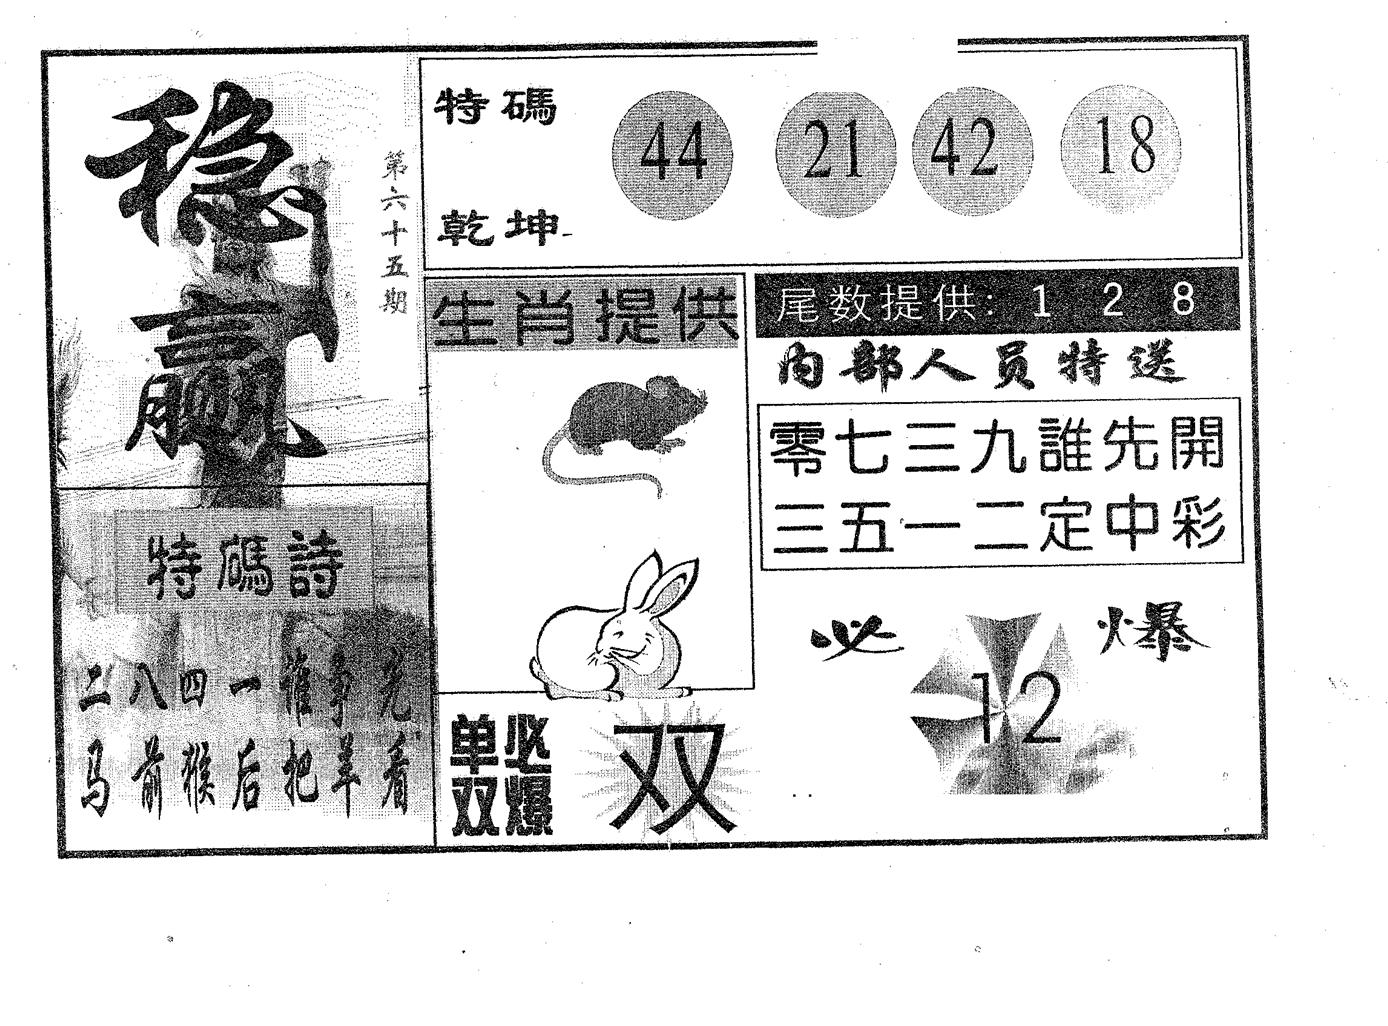 稳赢
第六十五期
特碼
乾坤
44 21 42 18
生肖提供
尾数提供: 1 2 8
内部人员特送
零七三九誰先開
三五一二定中彩
特碼詩
二八四一谁争先
马前猴后把羊看
单双必爆
双
必爆
12